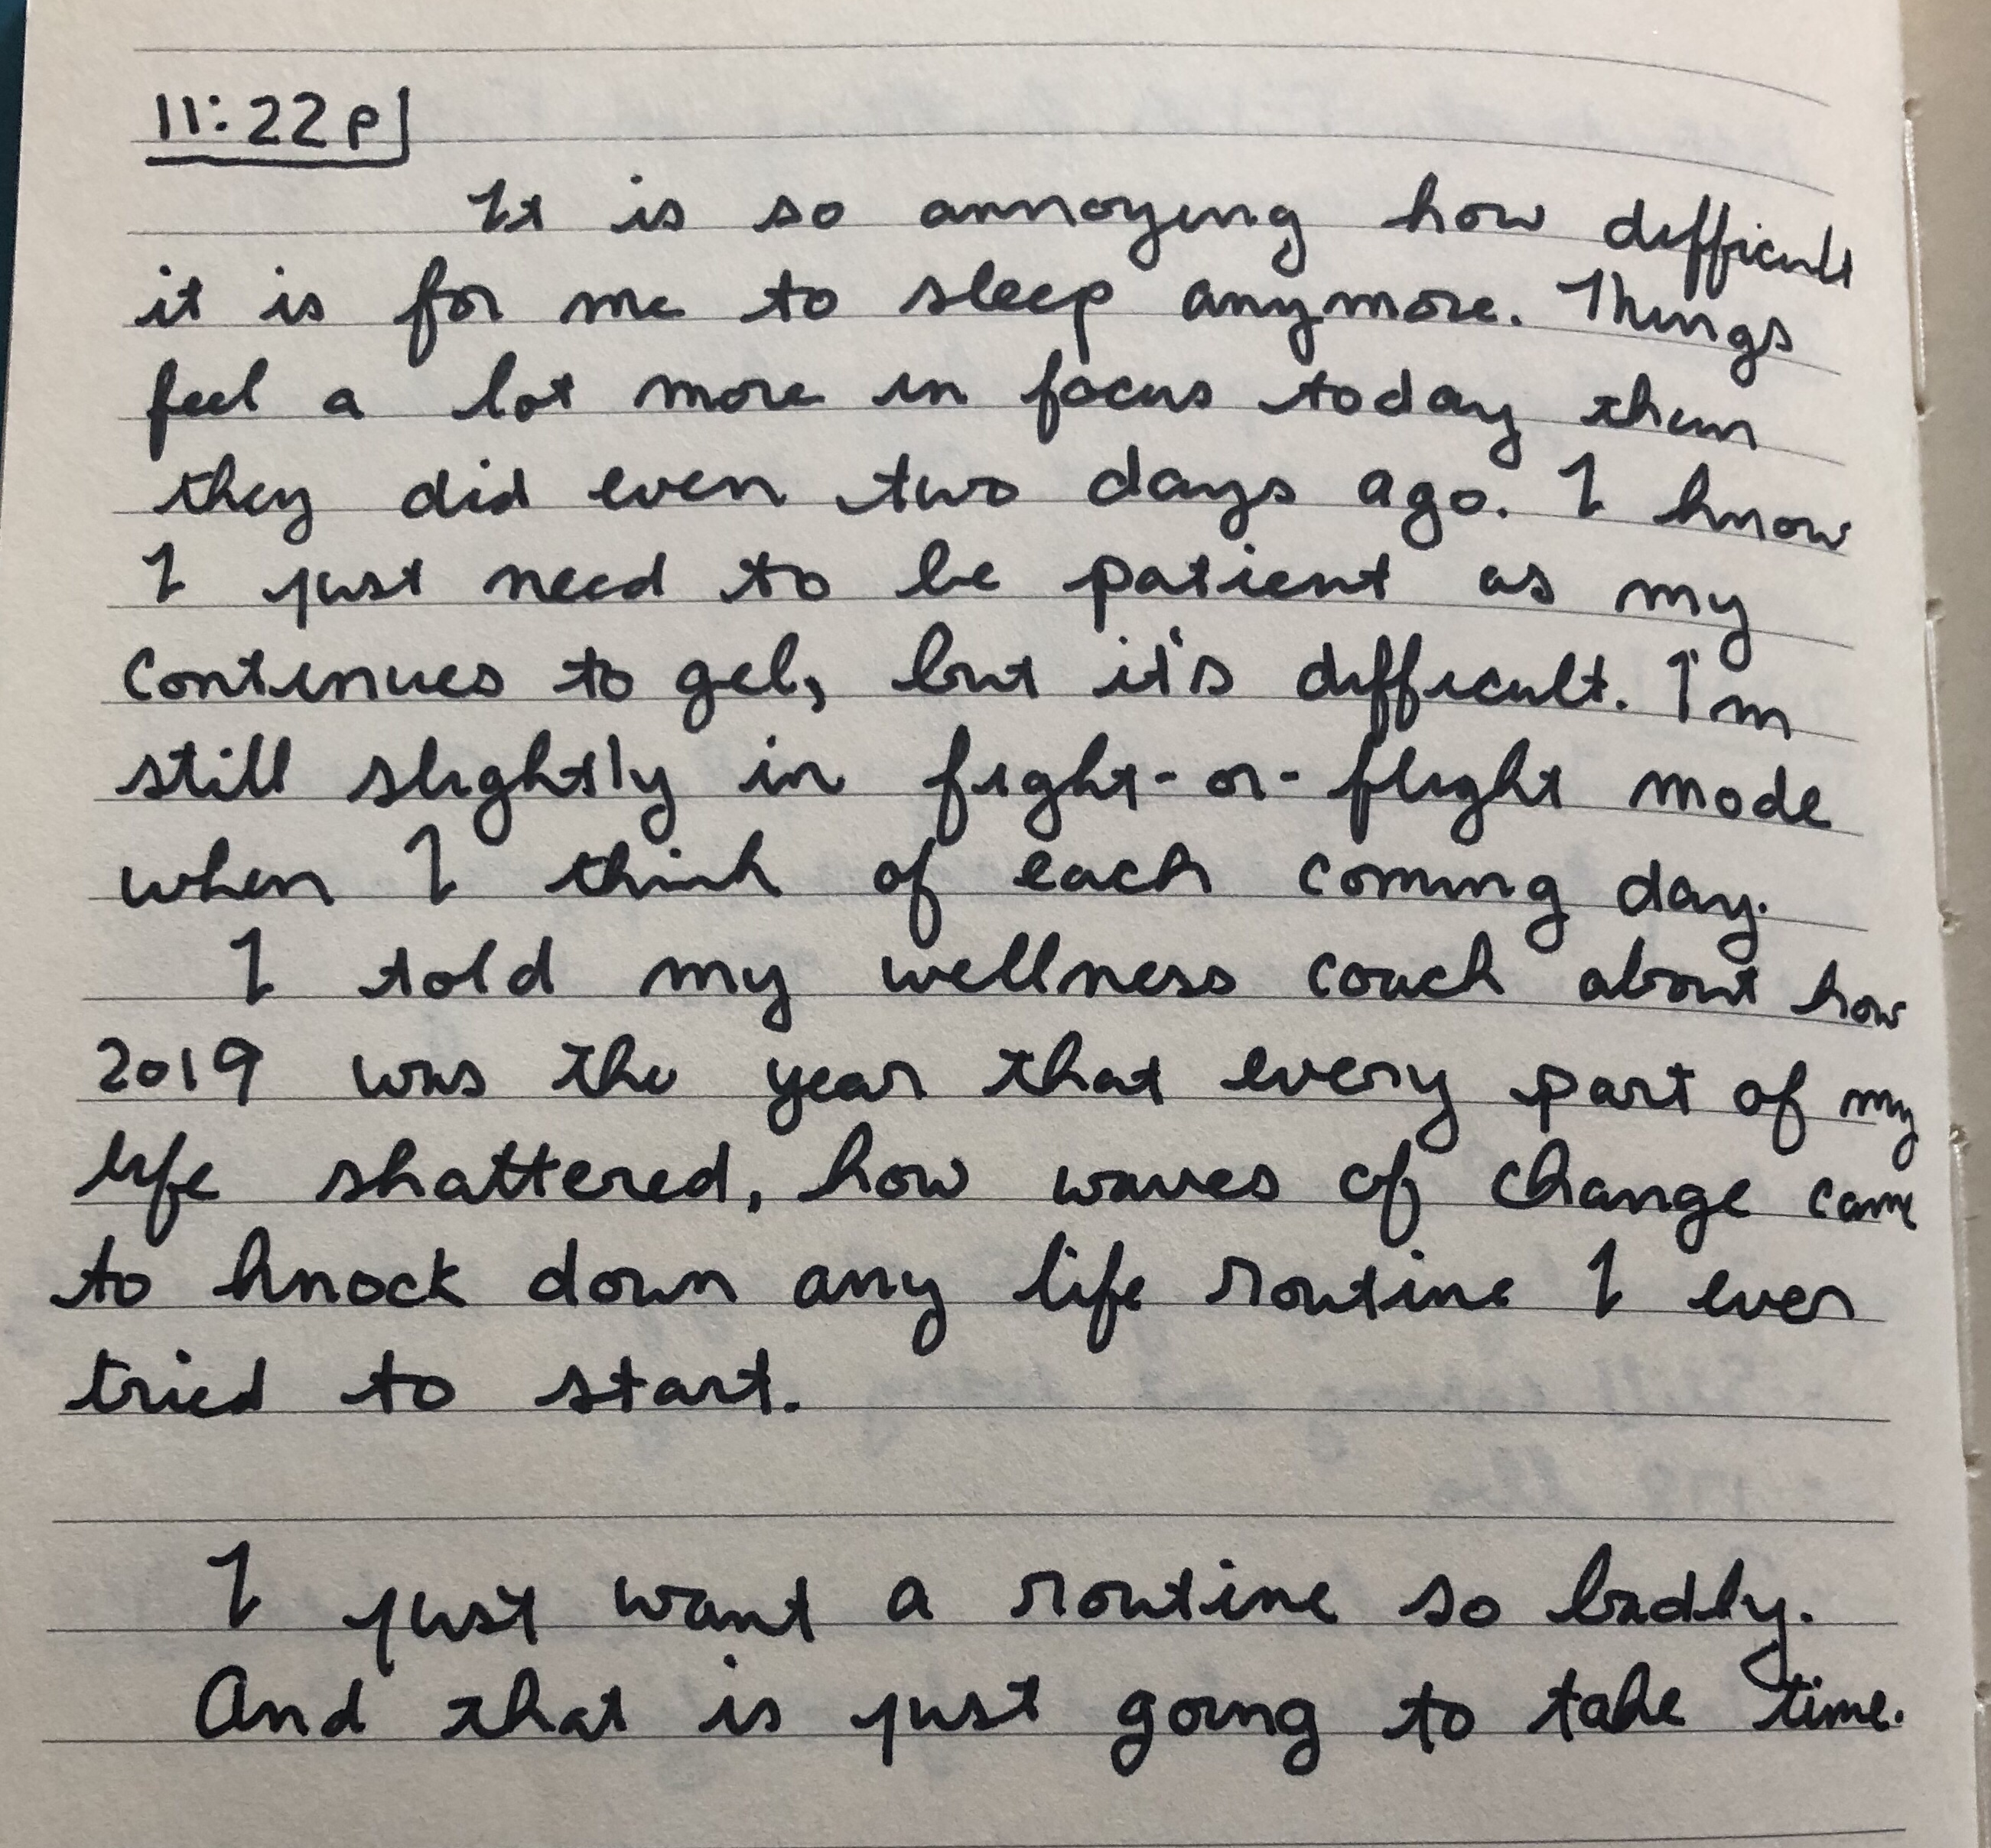 11:22p
It is so annoying how difficult
it is for me to sleep anymore. Things
feel a lot more in focus today than
they did even two days ago. I know
I just need to be patient as my
continues to gel, but it's difficult. I'm
still slightly in fight-or-flight mode
when I think of each coming day.
I told my wellness coach about how
2019 was the year that every part of my
life shattered, how waves of change came
to knock down any life routine I ever
tried to start.
I just want a routine so badly.
And that is just going to take time.